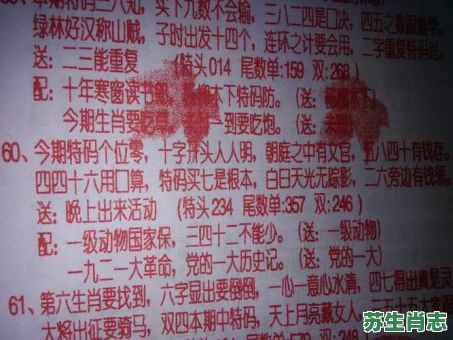 本期特码三八知，买下九数不会输，三八二四是口决，四五之数跟
绿林好汉称山贼，子时出发十四个，连环之计要会用，二字重复特码送。
送：二三能重复 (特头014 尾数单:159 双:268)
配：十年寒窗读书郎，木下特码防。(送：
今期生肖要吃，一到要吃饱。(送：
60、今期特码个位零，十字拼头人人明，朝庭之中有文官，五八四十有钱存。
四四十六用口算，特码买七是根本，白日天光无踪影，二六旁边有钱领。
送：晚上出来活动 (特头234 尾数单:357 双:246)
配：一级动物国家保，三四十二不能少。(送：一级动物)
一九二一大革命，党的一大历史记。(送：党的一大)
61、第六生肖要找到，六字显出要倒倒，一心一意心水清，四七得出真是灵
大将出征要骑马，双四本期中特码，天上月亮藏女人，二五十五大家
248)
苏生肖志